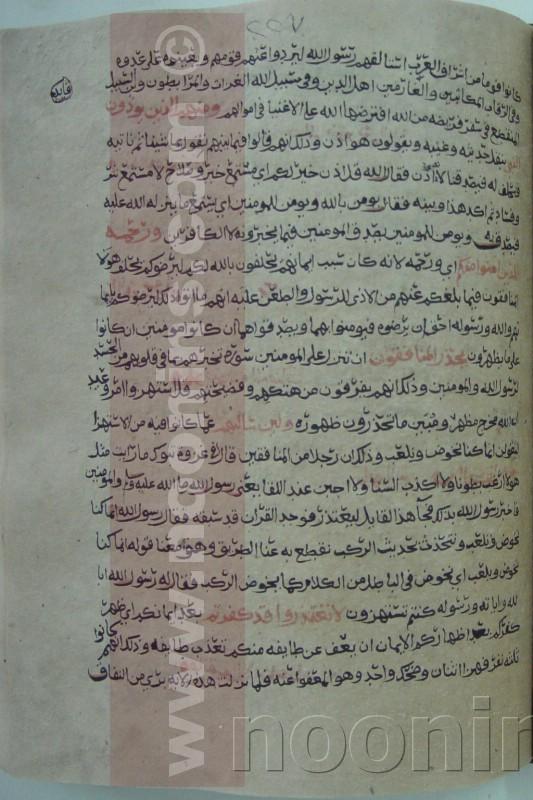 ٢٥٧
كانوا قوما من اشراف العرب استالفهم رسول الله ليردوا عنهم قومهم ويعينوه على عدوه
وفي الرقاب المكاتبين والغارمين اهل الدين وفي سبيل الله الغزاة والمرابطون وابن السبيل
المنقطع في سفر فريضة من الله افترضها الله على الاغنيا في اموالهم ومنهم الذين يوذون
النبي بنقل حديثه وعيبه ويقولون هو اذن وذلك انهم قالوا فيما بينهم نقول ما شينا ثم ناتيه
فنحلف له فيصدقنا لانه اذن فقال الله قل اذن خير لكم اي مستمع خير وصلاح لا مستمع شر
وفساد ثم اكد هذا وبينه فقال يومن بالله ويومن للمومنين اي يسمع ما ينزله الله عليه
فيصدقه ويومن للمومنين يصدق المومنين فيما يخبرونه لا الكافرين ورحمة
للذين امنوا منكم اي ورحمة لانه كان سبب ايمانهم يحلفون بالله لكم ليرضوكم يحلف هولا
المنافقون فيما بلغكم عنهم من الاذى للرسول والطعن عليه انهم ما اتوا ذلك ليرضوكم بيمينهم
والله ورسوله احق ان يرضوه فيومنوا بهما ويصدقوهما ان كانوا مومنين ان كانوا
على ما يظهرون يحذر المنافقون ان تنزل على المومنين سورة تخبرهم بما في قلوبهم من الحسد
لرسول الله والمومنين وذلك انهم يفرقون من هتكهم وفضيحتهم قل استهزوا امر وعيد
ان الله مخرج مظهر ومبين ما تحذرون ظهوره ولين سالتهم عما كانوا فيه من الاستهزا
ليقولن انما كنا نخوض ونلعب وذلك ان رجلا من المنافقين قال في غزوة تبوك ما رايت مثل
هولا ارغب بطونا ولا اكذب السنا ولا اجبن عند اللقا يعني رسول الله صلى الله عليه والمومنين
فاخبر رسول الله بذلك فجا هذا القايل ليعتذر فوجد القران قد سبقه فقال رسول الله انما كنا
نخوض ونلعب ونتحدث بحديث الركب نقطع به عنا الطريق وهو معنا قوله انما كنا
نخوض ونلعب اي نخوض في الباطل من الكلام كما يخوض الركب فقال له رسول الله ابا
لله واياته ورسوله كنتم تستهزون لا تعتذروا قد كفرتم بعد ايمانكم اي ظهر
كفركم بعد اظهاركم الايمان ان يعف عن طايفة منكم تعذب طايفة وذلك انهم كانوا
ثلثة نفر فهزا اثنان وضحك واحد وهو المعفو عنه فلما نزلت هذه الاية بري من النفاق
© www.noormicrofilms.com
noonir